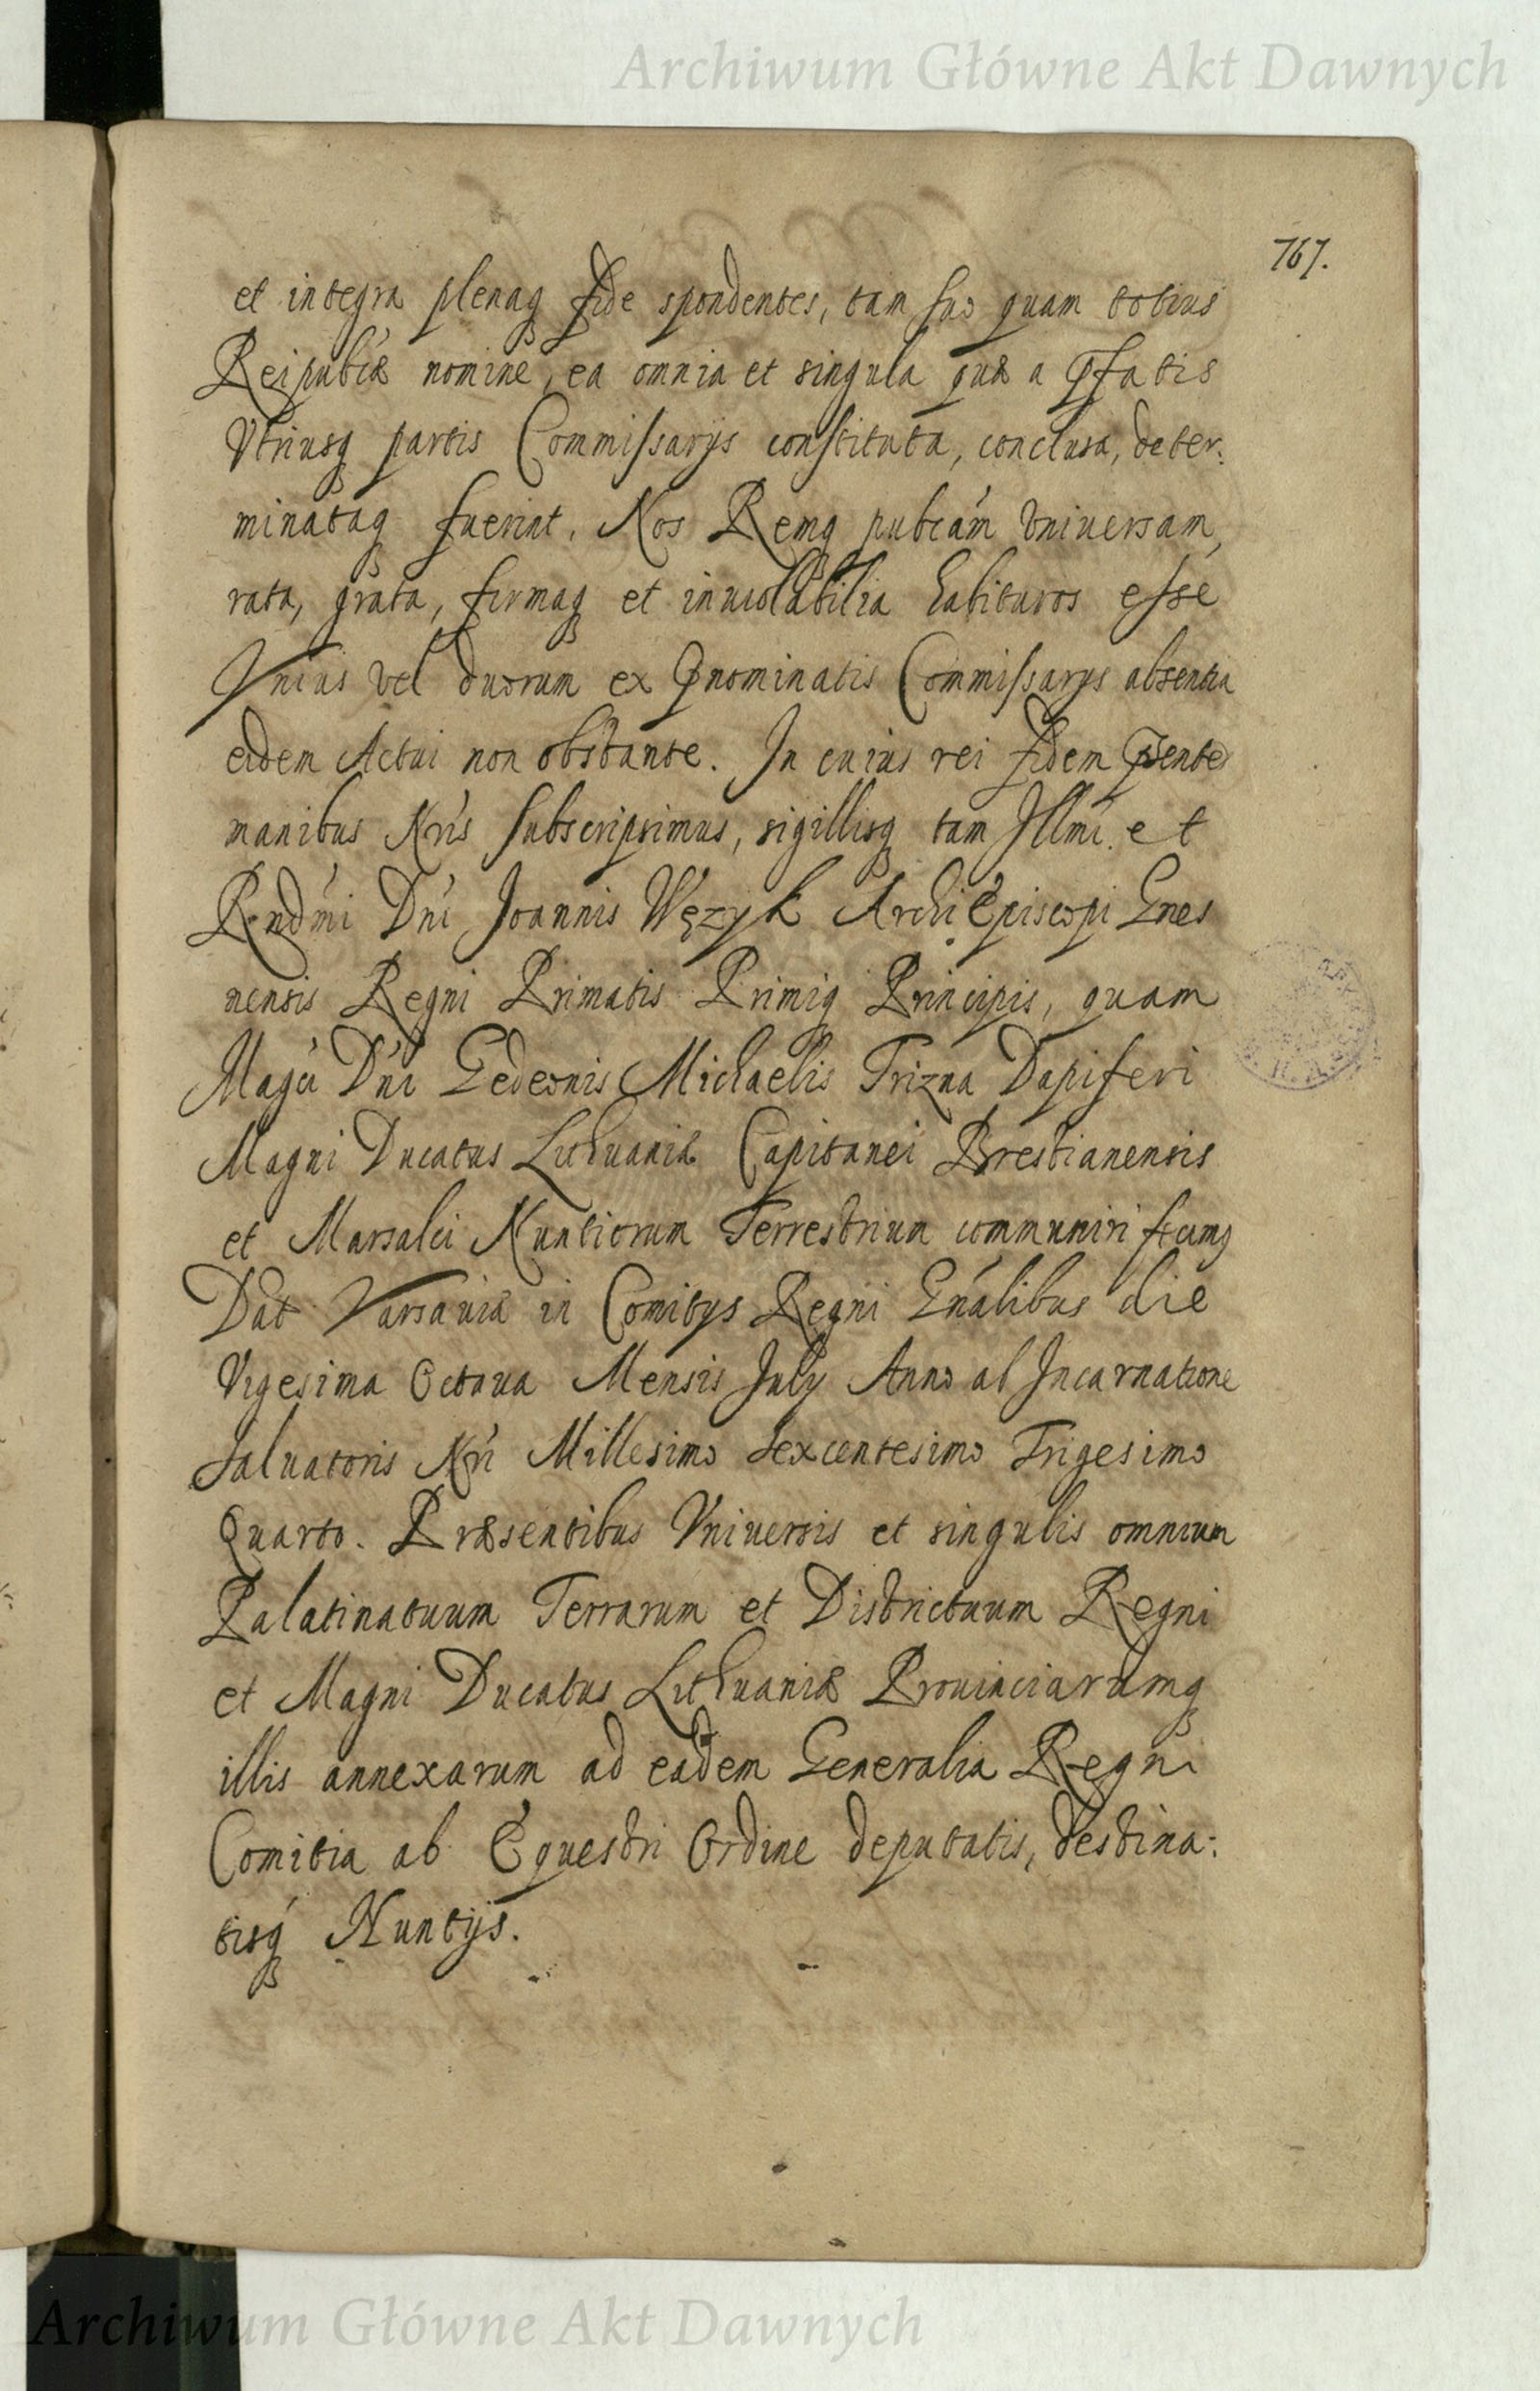 Archiwum Główne Akt Dawnych
767.
et integra plenaq fide spondentes, tam suo quam totius
Reipublcæ nomine, ea omnia et singula quæ a Pfatis
Vtriusq partis Commissarijs constituta, conclusa, deter:
minataq fuerint. Nos Remq publcám Vniuersam,
rata, grata, firmaq et inuiolabilia habituros esse
Vnius vel duorum ex Pnominatis Commissarijs absentia
eidem Actui non obstante. In cuius rei fidem Psentes
manibus Nris subscripsimus, sigillisq tam Illmi. et
Rendmi Dni Joannis Wężyk ArchiEpiscopi Gnes
nensis Regni Primatis Primiq Principis, quam
Magci Dni Gedeonis Michaelis Trizna Dapiferi
Magni Ducatus Lithuaniæ Capitanei Brestianensis
et Marsalci Nuntiorum Terrestrium communiri fecimq
Dat Varsauiæ in Comitijs Regni Gnálibus die
Vigesima Octaua Mensis July Anno ab Incarnatione
Saluatoris Nri Millesimo Sexcentesimo Trigesimo
Quarto. Præsentibus Vniuersis et singulis omnium
Palatinatuum Terrarum et Districtuum Regni
et Magni Ducatus Lithuaniæ Prouinciarumq
illis annexarum ad eadem Generalia Regni
Comitia ab Equestri Ordine deputatis, destina:
tisq Nuntijs.
Archiwum Główne Akt Dawnych